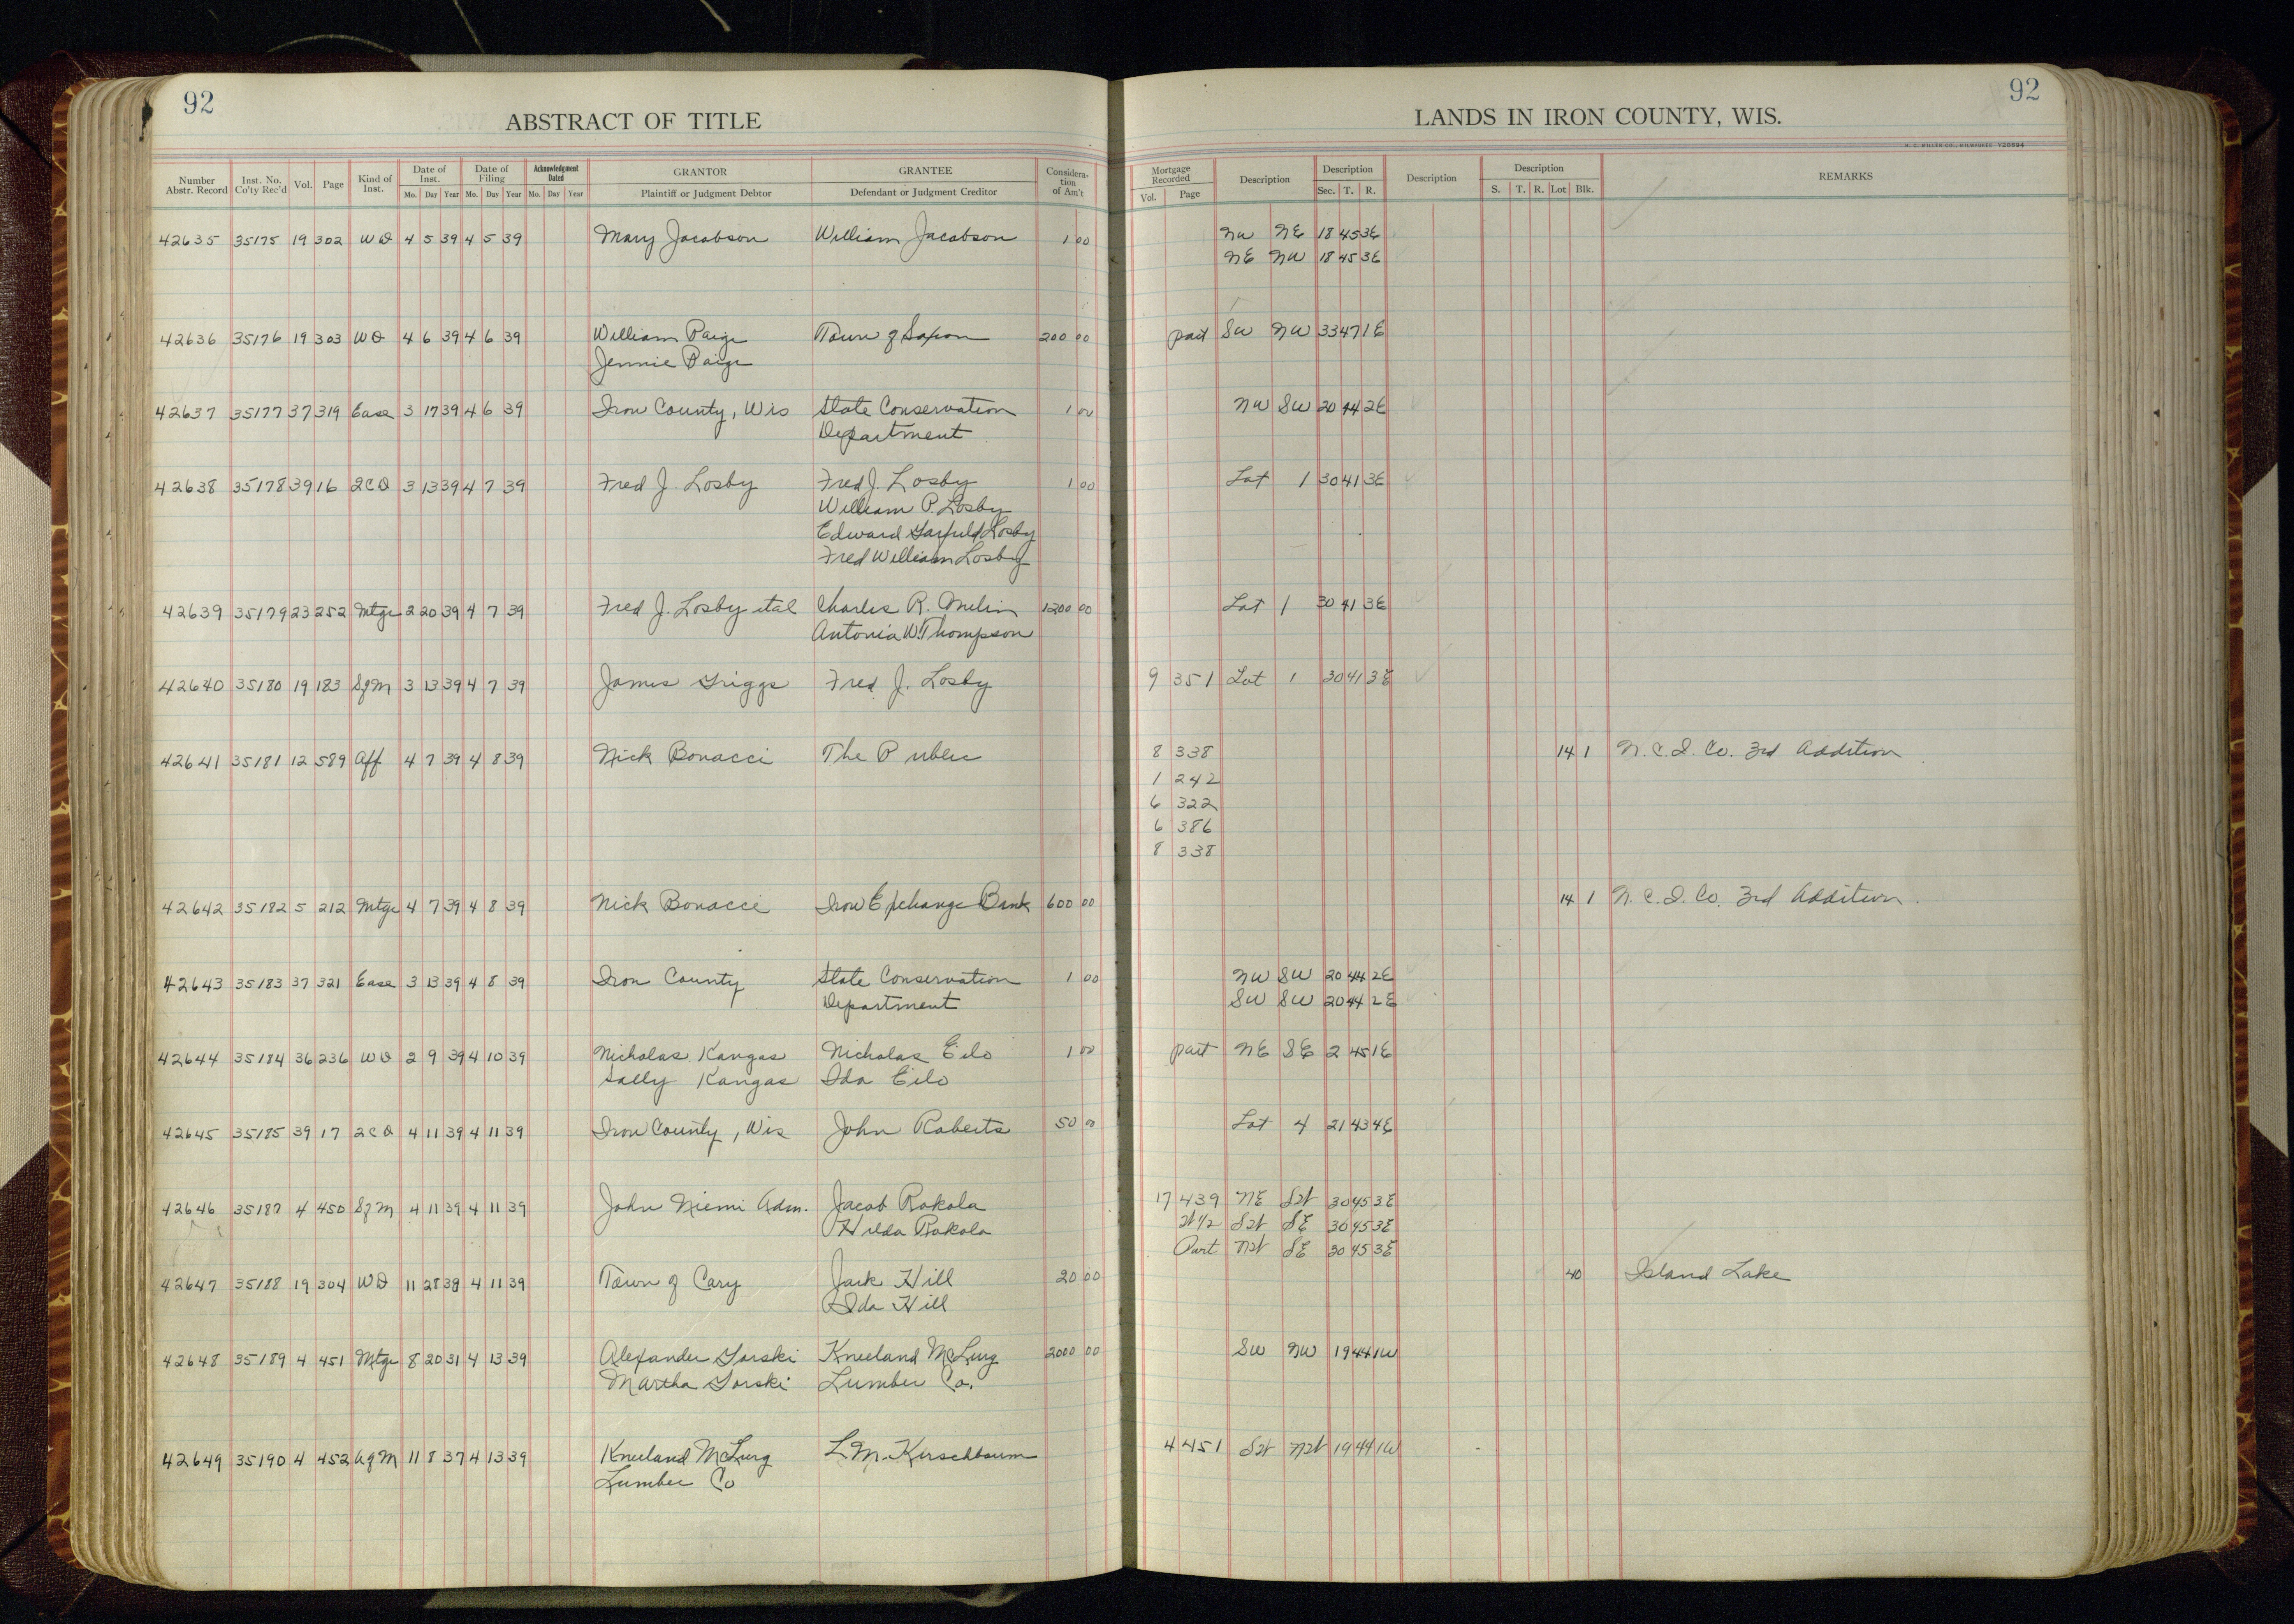 92
ABSTRACT OF TITLE
Number Abstr. Record Inst. No. Co'ty Rec'd Vol. Page Kind of Inst. Date of Inst. Mo. Day Year Date of Filing Mo. Day Year Acknowledgment Dated Mo. Day Year GRANTOR Plaintiff or Judgment Debtor GRANTEE Defendant or Judgment Creditor Considera-tion of Am't
92
LANDS IN IRON COUNTY, WIS.
H. C. MILLER CO., MILWAUKEE V20594
Mortgage Recorded Vol. Page Description Description Sec. T. R. Description Description S. T. R. Lot Blk. REMARKS
42635 35175 19 302 WD 4 5 39 4 5 39 Mary Jacobson William Jacobson 1 00 NW NE 18 45 3E
NE NW 18 45 3E
42636 35176 19 303 WD 4 6 39 4 6 39 William Paige Town of Saxon 200 00 part SW NW 33 47 1E
Jennie Paige
42637 35177 37 319 Ease 3 17 39 4 6 39 Iron County, Wis State Conservation 1 00 NW SW 20 44 2E
Department
42638 35178 39 16 2CD 3 13 39 4 7 39 Fred J. Losby Fred J. Losby 1 00 Lot 1 30 41 3E
William P. Losby
Edward Garfield Losby
Fred William Losby
42639 35179 23 252 Mtge 2 20 39 4 7 39 Fred J. Losby etal Charles R. 1200 00 Lot 1 30 41 3E
Antonia W. Thompson
42640 35180 19 183 SfM 3 13 39 4 7 39 James Griggs Fred J. Losby 9 351 Lot 1 30 41 3E
42641 35181 12 589 Aff 4 7 39 4 8 39 Nick Bonacci The Public 8 338 14 1 N. C. I. Co. 3rd Addition
1 242
6 322
6 386
8 338
42642 35182 5 212 Mtge 4 7 39 4 8 39 Nick Bonacci Iron Exchange Bank 600 00 14 1 N. C. I. Co. 3rd Addition.
42643 35183 37 321 Ease 3 13 39 4 8 39 Iron County State Conservation 1 00 NW SW 20 44 2E
Department SW SW 20 44 2E
42644 35184 36 236 WD 2 9 39 4 10 39 Nicholas Kangas Nicholas Eilo 1 00 part NE SE 2 45 1E
Sally Kangas Ida Eilo
42645 35185 39 17 2CD 4 11 39 4 11 39 Iron County, Wis John Roberts 50 00 Lot 4 21 43 4E
42646 35187 4 450 SfM 4 11 39 4 11 39 John Niemi Adm. Jacob Rakola 17 439 NE SW 30 45 3E
Hilda Rakola W1/2 SW SE 30 45 3E
Part NW SE 30 45 3E
42647 35188 19 304 WD 11 28 38 4 11 39 Town of Cary Jack Hill 20 00 40 Island Lake
Ida Hill
42648 35189 4 451 Mtge 8 20 31 4 13 39 Alexander Gorski Kneeland McLurg 2000 00 SW NW 19 44 1W
Martha Gorski Lumber Co.
42649 35190 4 452 AfM 11 8 37 4 13 39 Kneeland McLurg L. M. Kirschbaum 4 451 SW NW 19 44 1W
Lumber Co